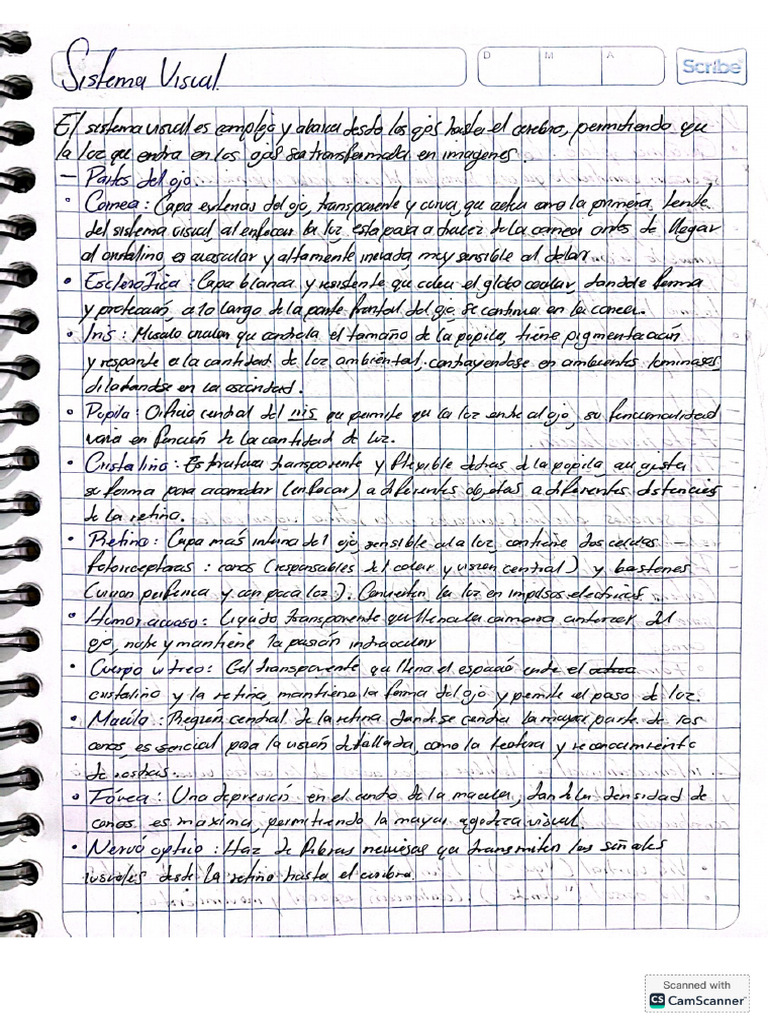 Sistema Visual.
D M A
Scribe
El sistema visual es complejo y abarca desde los ojos hasta el cerebro, permitiendo que
la luz que entra en los ojos sea transformada en imagenes.
— Partes del ojo
• Cornea: Capa externa del ojo, transparente y curva, que actua como la primera lente
del sistema visual, al enfocar la luz, esta pasa a traves de la cornea antes de llegar
al cristalino, es avascular y altamente inervada, muy sensible al dolor.
• Esclerotica: Capa blanca y resistente que cubre el globo ocular, dandole forma
y proteccion, a lo largo de la parte frontal del ojo, se continua en la cornea.
• Iris: Musculo circular que controla el tamaño de la pupila, tiene pigmentación
y responde a la cantidad de luz ambiental, contrayendose en ambientes luminosos,
dilatandose en la oscuridad.
• Pupila: Orificio central del iris que permite que la luz entre al ojo, su funcionalidad
varia en función de la cantidad de luz.
• Cristalino: Estrutura transparente y flexible detras de la pupila, que ajusta
su forma para acomodar (enfocar) a diferentes objetos a diferentes distancias
de la retina.
• Retina: Capa más interna del ojo, sensible a la luz, contiene dos celulas —
fotorreceptoras: conos (responsables del color y vision central) y bastones
(vision periferica y con poca luz). Convierten la luz en impulsos electricos.
• Humor acuoso: Liquido transparente que llena la camara anterior del
ojo, nutre y mantiene la presión intraocular
• Cuerpo vitreo: Gel transparente que llena el espacio entre el
cristalino y la retina, mantiene la forma del ojo y permite el paso de luz.
• Macula: Región central de la retina donde se centra la mayor parte de los
conos, es esencial para la visión detallada, como la lectura y reconocimiento
de rostros.
• Fóvea: Una depresión en el centro de la macula, donde la densidad de
conos es maxima, permitiendo la mayor agudeza visual.
• Nervo optico: Haz de fibras nerviosas que transmiten las señales
visuales desde la retina hasta el cerebro.
Scanned with
CS CamScanner